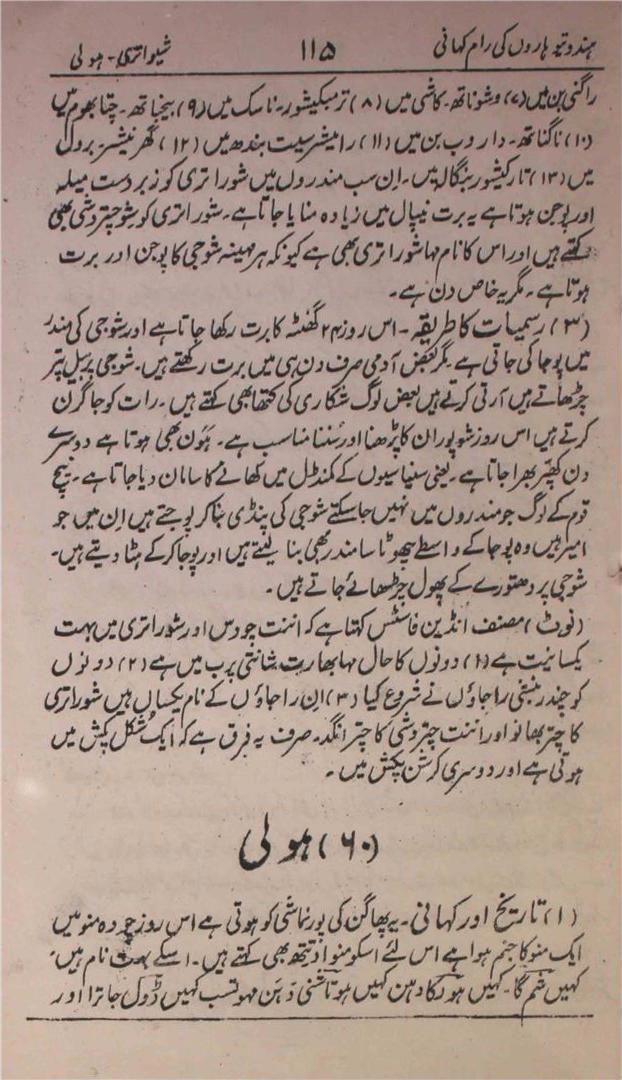 ہندو تیوہاروں کی رام کہانی ۱۱۵ شیواتری - ہولی
راگنی بن میں (۷) وشوناتھ - کاشی میں (۸) ترمبکیشور - ناسک میں (۹) بیجناتھ - چتا بھوم میں
(۱۰) ناگناتھ - داروب بن میں (۱۱) رامیشر سیت بندھ میں (۱۲) گھرنیشر - بروک
میں (۱۳) تارکیشور بنگالہ میں - اِن سب مندروں میں شوراتری کو زبردست میلہ
اور پوجن ہوتا ہے یہ برت نیپال میں زیادہ منایا جاتا ہے - شوراتری کو شوچتروشی بھی
کہتے ہیں اور اس کا نام مہا شوراتری بھی ہے کیونکہ ہر مہینہ شوجی کا پوجن اور برت
ہوتا ہے - مگر یہ خاص دن ہے -
(۳) رسمیات کا طریقہ - اس روز ۲۴ گھنٹہ کا برت رکھا جاتا ہے اور شوجی کی مندر
میں پوجا کی جاتی ہے مگر بعض آدمی صرف دن ہی میں برت رکھتے ہیں - شوجی پر بیل پتر
چڑھاتے ہیں آرتی کرتے ہیں بعض لوگ شکاری کی کتھا بھی کہتے ہیں - رات کو جاگرن
کرتے ہیں اس روز شوپوران کا پڑھنا اور سُننا مناسب ہے - ہَون بھی ہوتا ہے دوسرے
دن کھپّر بھرا جاتا ہے - یعنی سنیاسیوں کے کمنڈل میں کھانے کا سامان دیا جاتا ہے - نیچ
قوم کے لوگ جو مندروں میں نہیں جا سکتے شوجی کی پنڈی بنا کر پوجتے ہیں اِن میں جو
امیر ہیں وہ پوجا کے واسطے چھوٹا سا مندر بھی بنا لیتے ہیں اور پوجا کر کے ہٹا دیتے ہیں -
شوجی پر دھتورے کے پھول چڑھائے جاتے ہیں -
(نوٹ) مصنف انڈین فاسٹس کہتا ہے کہ اننت چودس اور شوراتری میں بہت
یکسانیت ہے (۱) دونوں کا حال مہا بھارت شانتی پرب میں ہے (۲) دونوں
کو چندر بنسی راجاؤں نے شروع کیا (۳) اِن راجاؤں کے نام یکساں ہیں شوراتری
کا چتر بھانو اور اننت چتروشی کا چترانگد - صرف یہ فرق ہے کہ ایک شُکل پکش میں
ہوتی ہے اور دوسری کرشن پکش میں -
(۶۰) ہولی
(۱) تاریخ اور کہانی - یہ پھاگن کی پورنماشی کو ہوتی ہے اس روز چودہ منو میں
ایک منو کا جنم ہوا ہے اس لئے اسکو منواد تیتھ بھی کہتے ہیں - اسکے بہت نام ہیں
کہیں شم گا - کہیں ہولکا دہن کہیں ہوتاشنی دَہَن مہوتسب کہیں ڈول جاترا اور